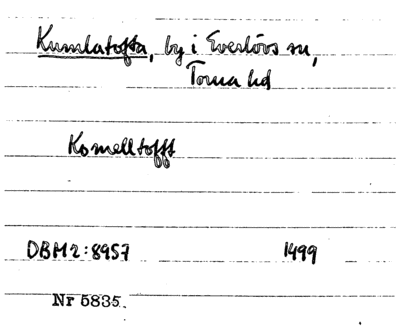 Kumlatofta, by i Everlövs sn,
Torna hd
Komelltofft
DBM2:8957 1499
Nr 5835.